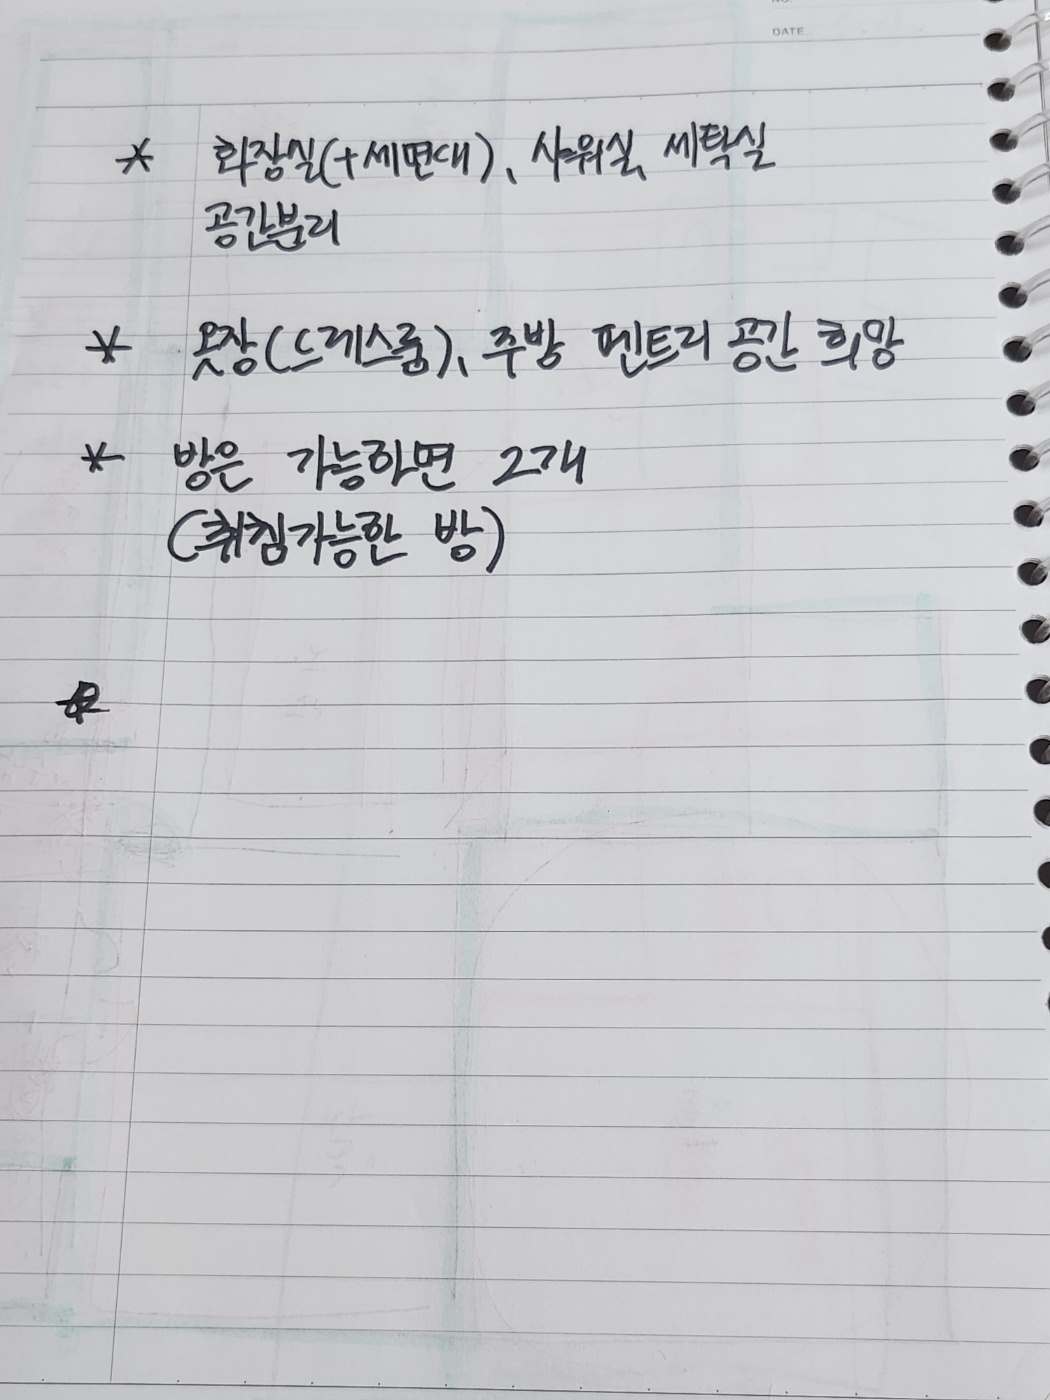 NO.
DATE
* 화장실(+세면대), 샤워실, 세탁실
공간분리
* 옷장(드레스룸), 주방 펜트리 공간 희망
* 방은 가능하면 2개
(취침가능한 방)